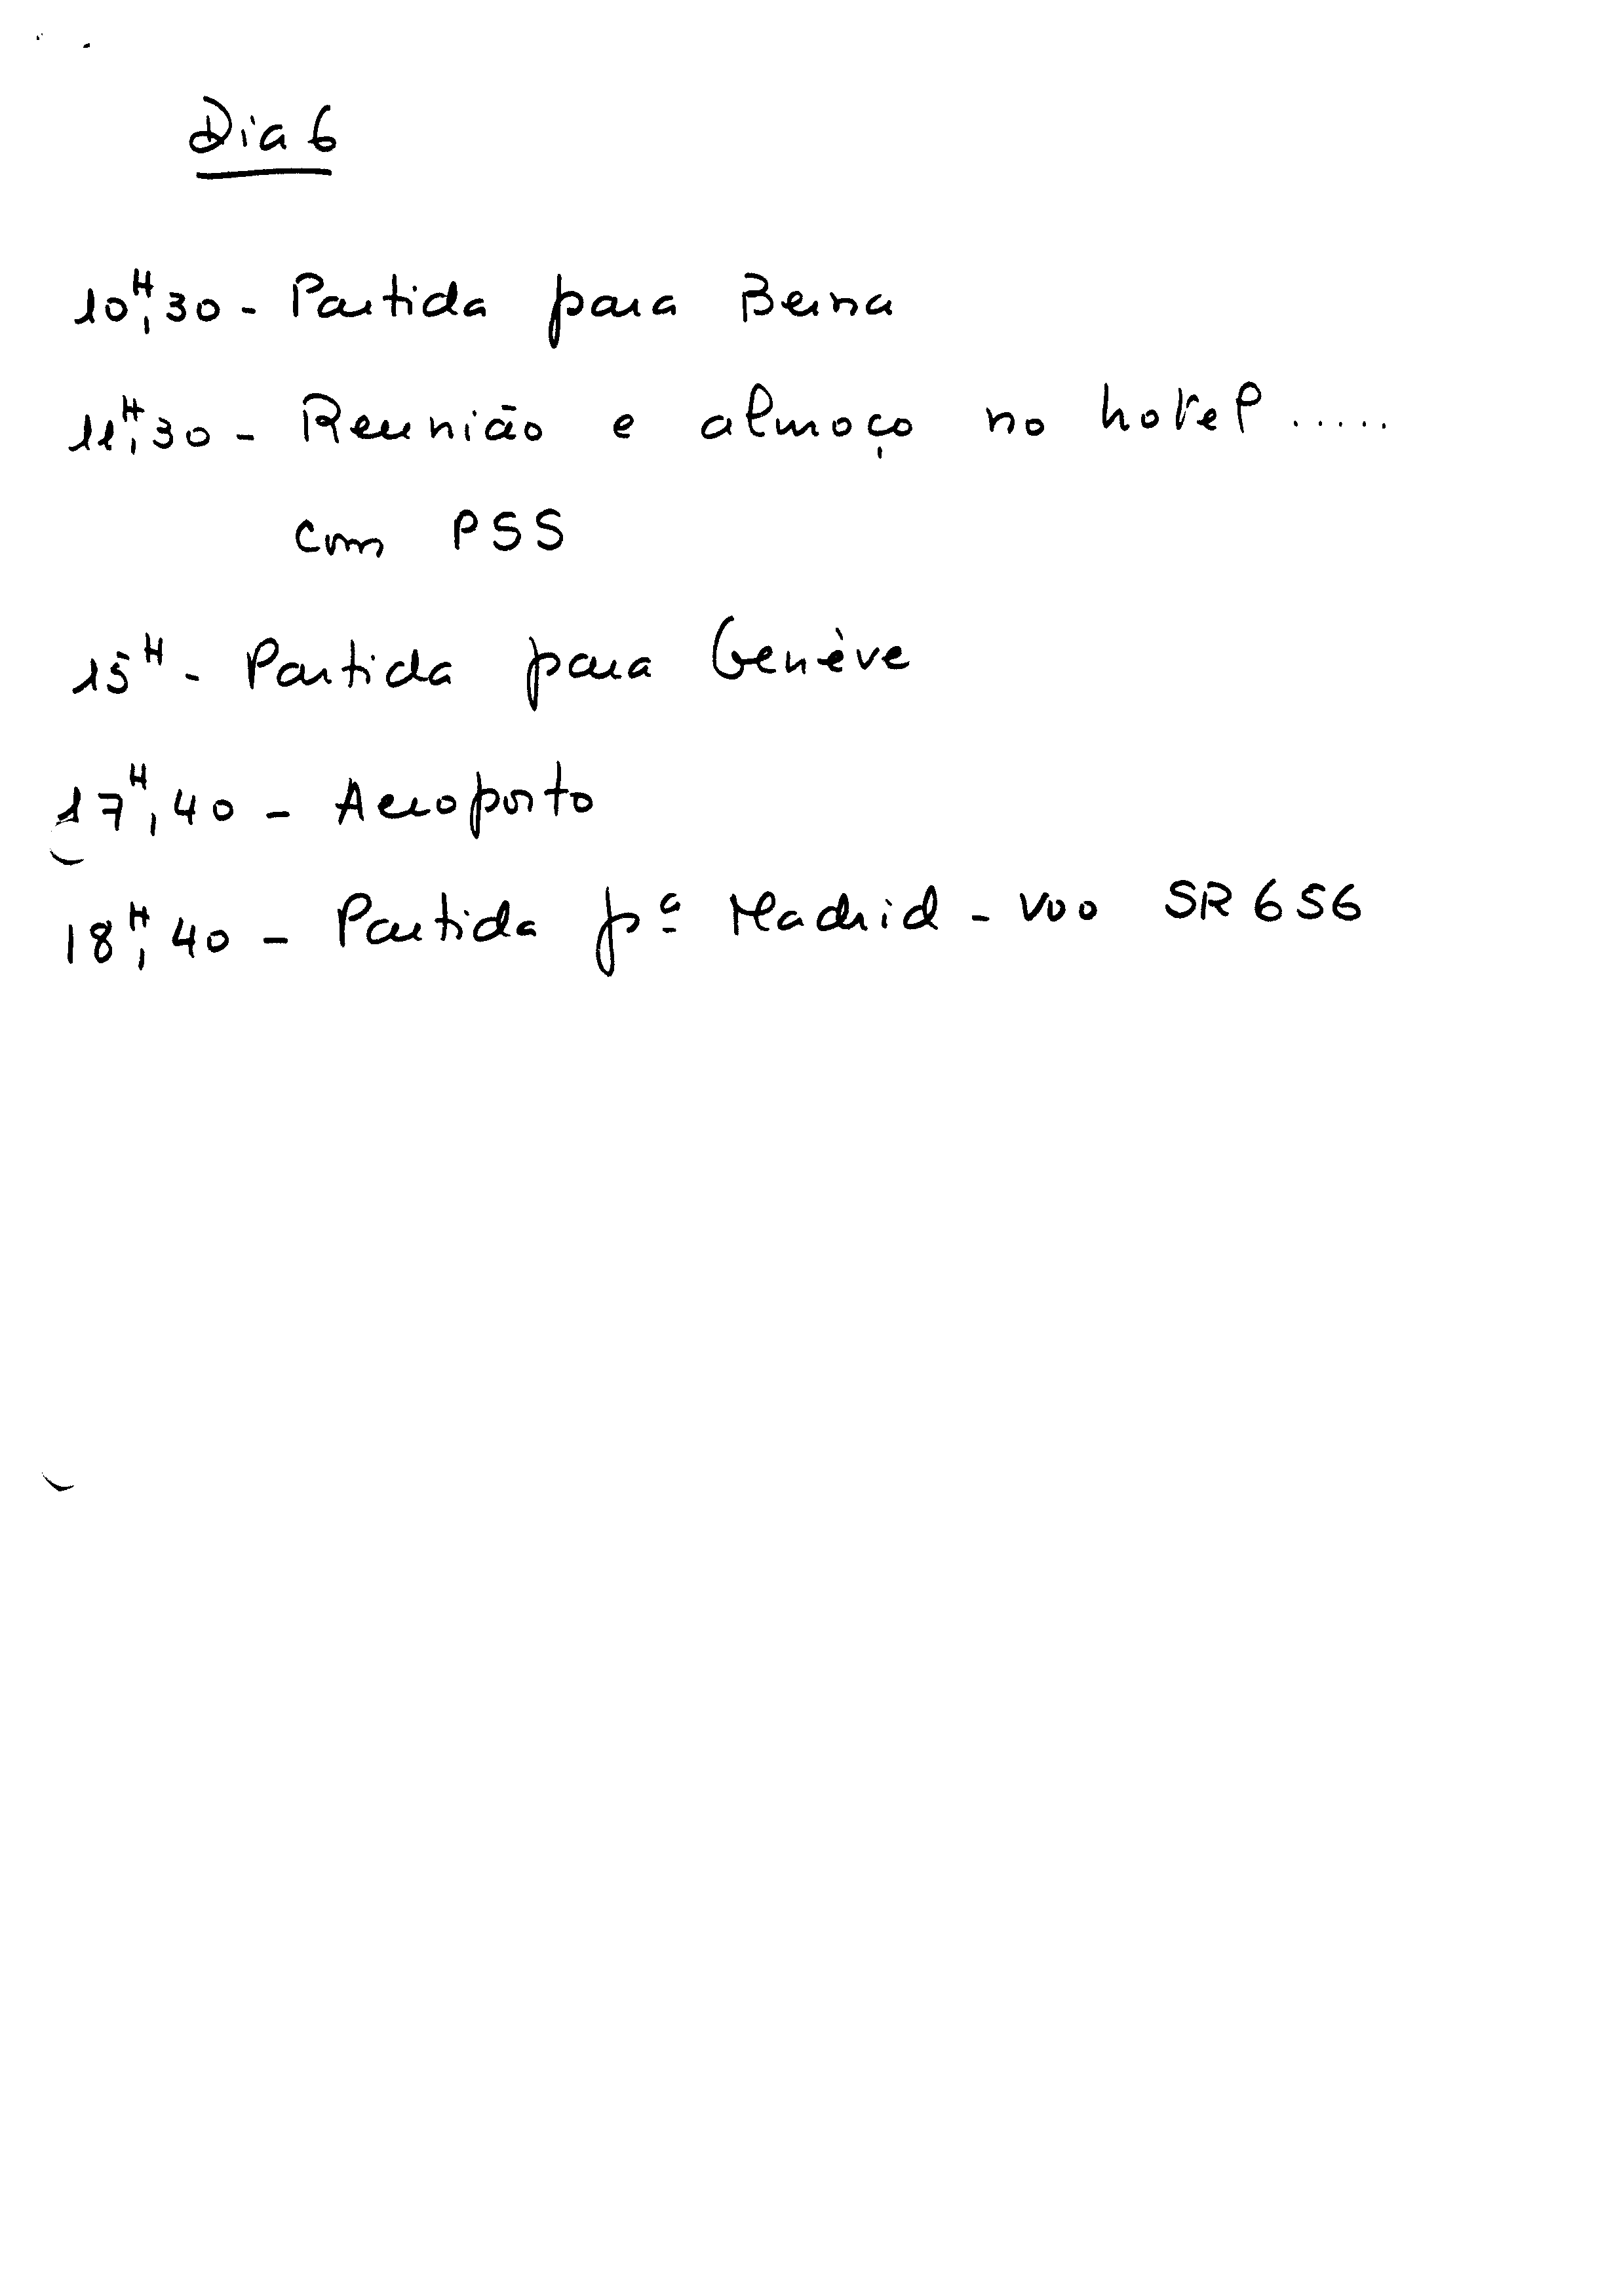 Dia 6
10H,30 - Partida para Berna
11H,30 - Reunião e almoço no hotel .....
com PSS
15H - Partida para Genève
17H,40 - Aeroporto
18H,40 - Partida pª Madrid - voo SR 656